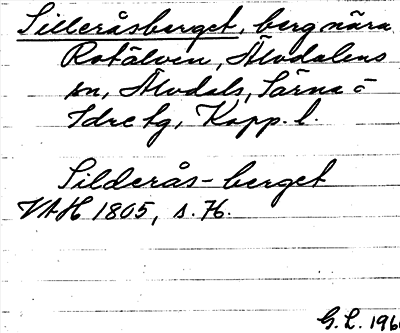 Silleråsberget, berg nära
Rotälven, Älvdalens
sn, Älvdals, Särna o
Idre tg, Kopp. l.
Silderås-berget
VAH 1805, s. 76.
G. L. 196